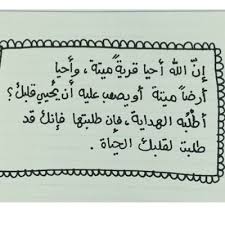 إنّ الله أحيا قريةً ميتة ، وأحيا
أرضاً ميتة أويصعب عليه أن يُحيي قلبك ؟
أطلُبه الهداية ، فإن طلبتها فإنك قد
طلبت لقلبك الحياة .